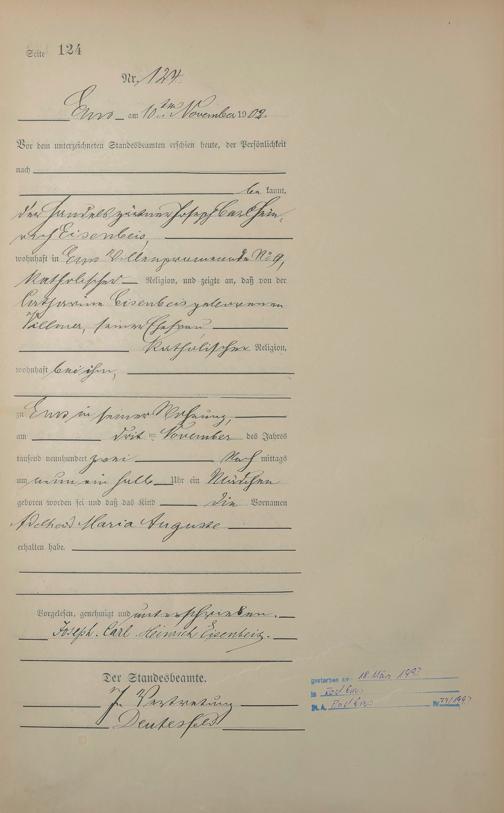 Seite 124
Nr. 124
Ems am 10ten November 1902.
Vor dem unterzeichneten Standesbeamten erschien heute, der Persönlichkeit
nach
be kannt,
der Handelsgärtner Joseph Carl Hein-
rich Eisenbeis,
wohnhaft in Ems Villenpromenade No 9,
katholischer Religion, und zeigte an, daß von der
Catharina Eisenbeis geborenen
seiner Ehefrau
katholischer Religion,
wohnhaft bei ihm,
zu Ems in seiner Wohnung,
am November des Jahres
tausend neunhundert zwei Nach mittags
um neun ein halb Uhr ein Mädchen
geboren worden sei und daß das Kind die Vornamen
Maria Auguste
erhalten habe.
Vorgelesen, genehmigt und unterschrieben.
Joseph. Carl Heinrich Eisenbeis.
Der Standesbeamte.
In Vertretung
gestorben am 18. März
in Bad Ems
St.A. Bad Ems Nr